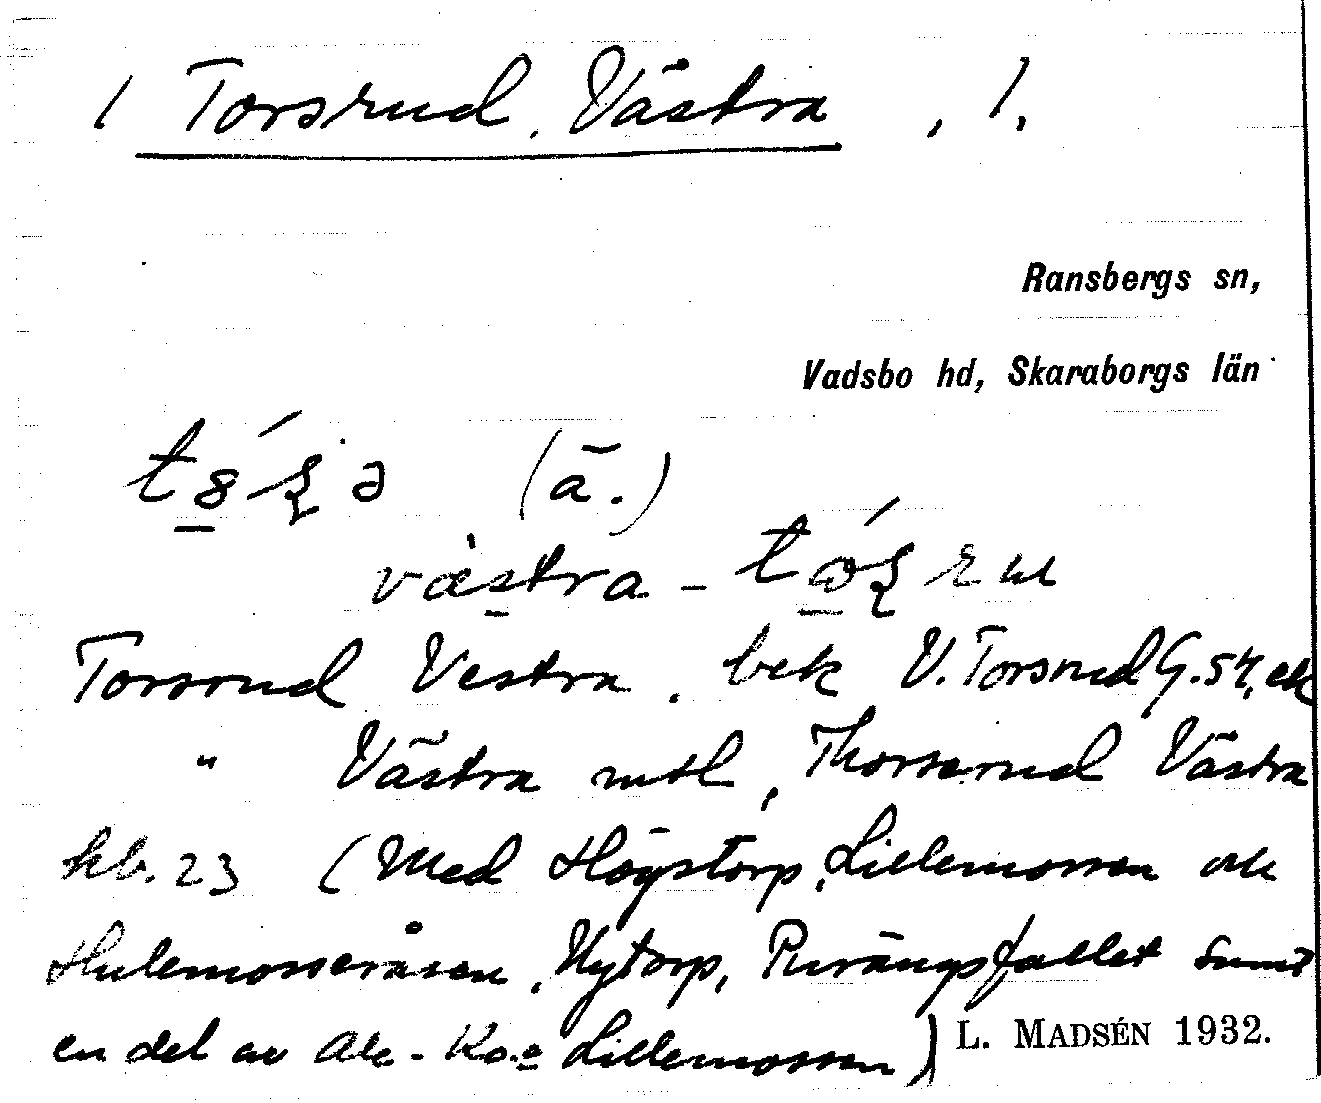 1 Torsrud, Västra, 1.
Ransbergs sn,
Vadsbo hd, Skaraborgs län
(ä.)
västra -
Torsrud Vestra. bek V. Torsrud G. 57, ek
" Västra mtl, Thorserud Västra
hb. 23 (Med Högstorp, Lillemossen och
Hulemosseråsen, Nytorp, fallet samt
en del av Lillemossen)
L. MADSÉN 1932.